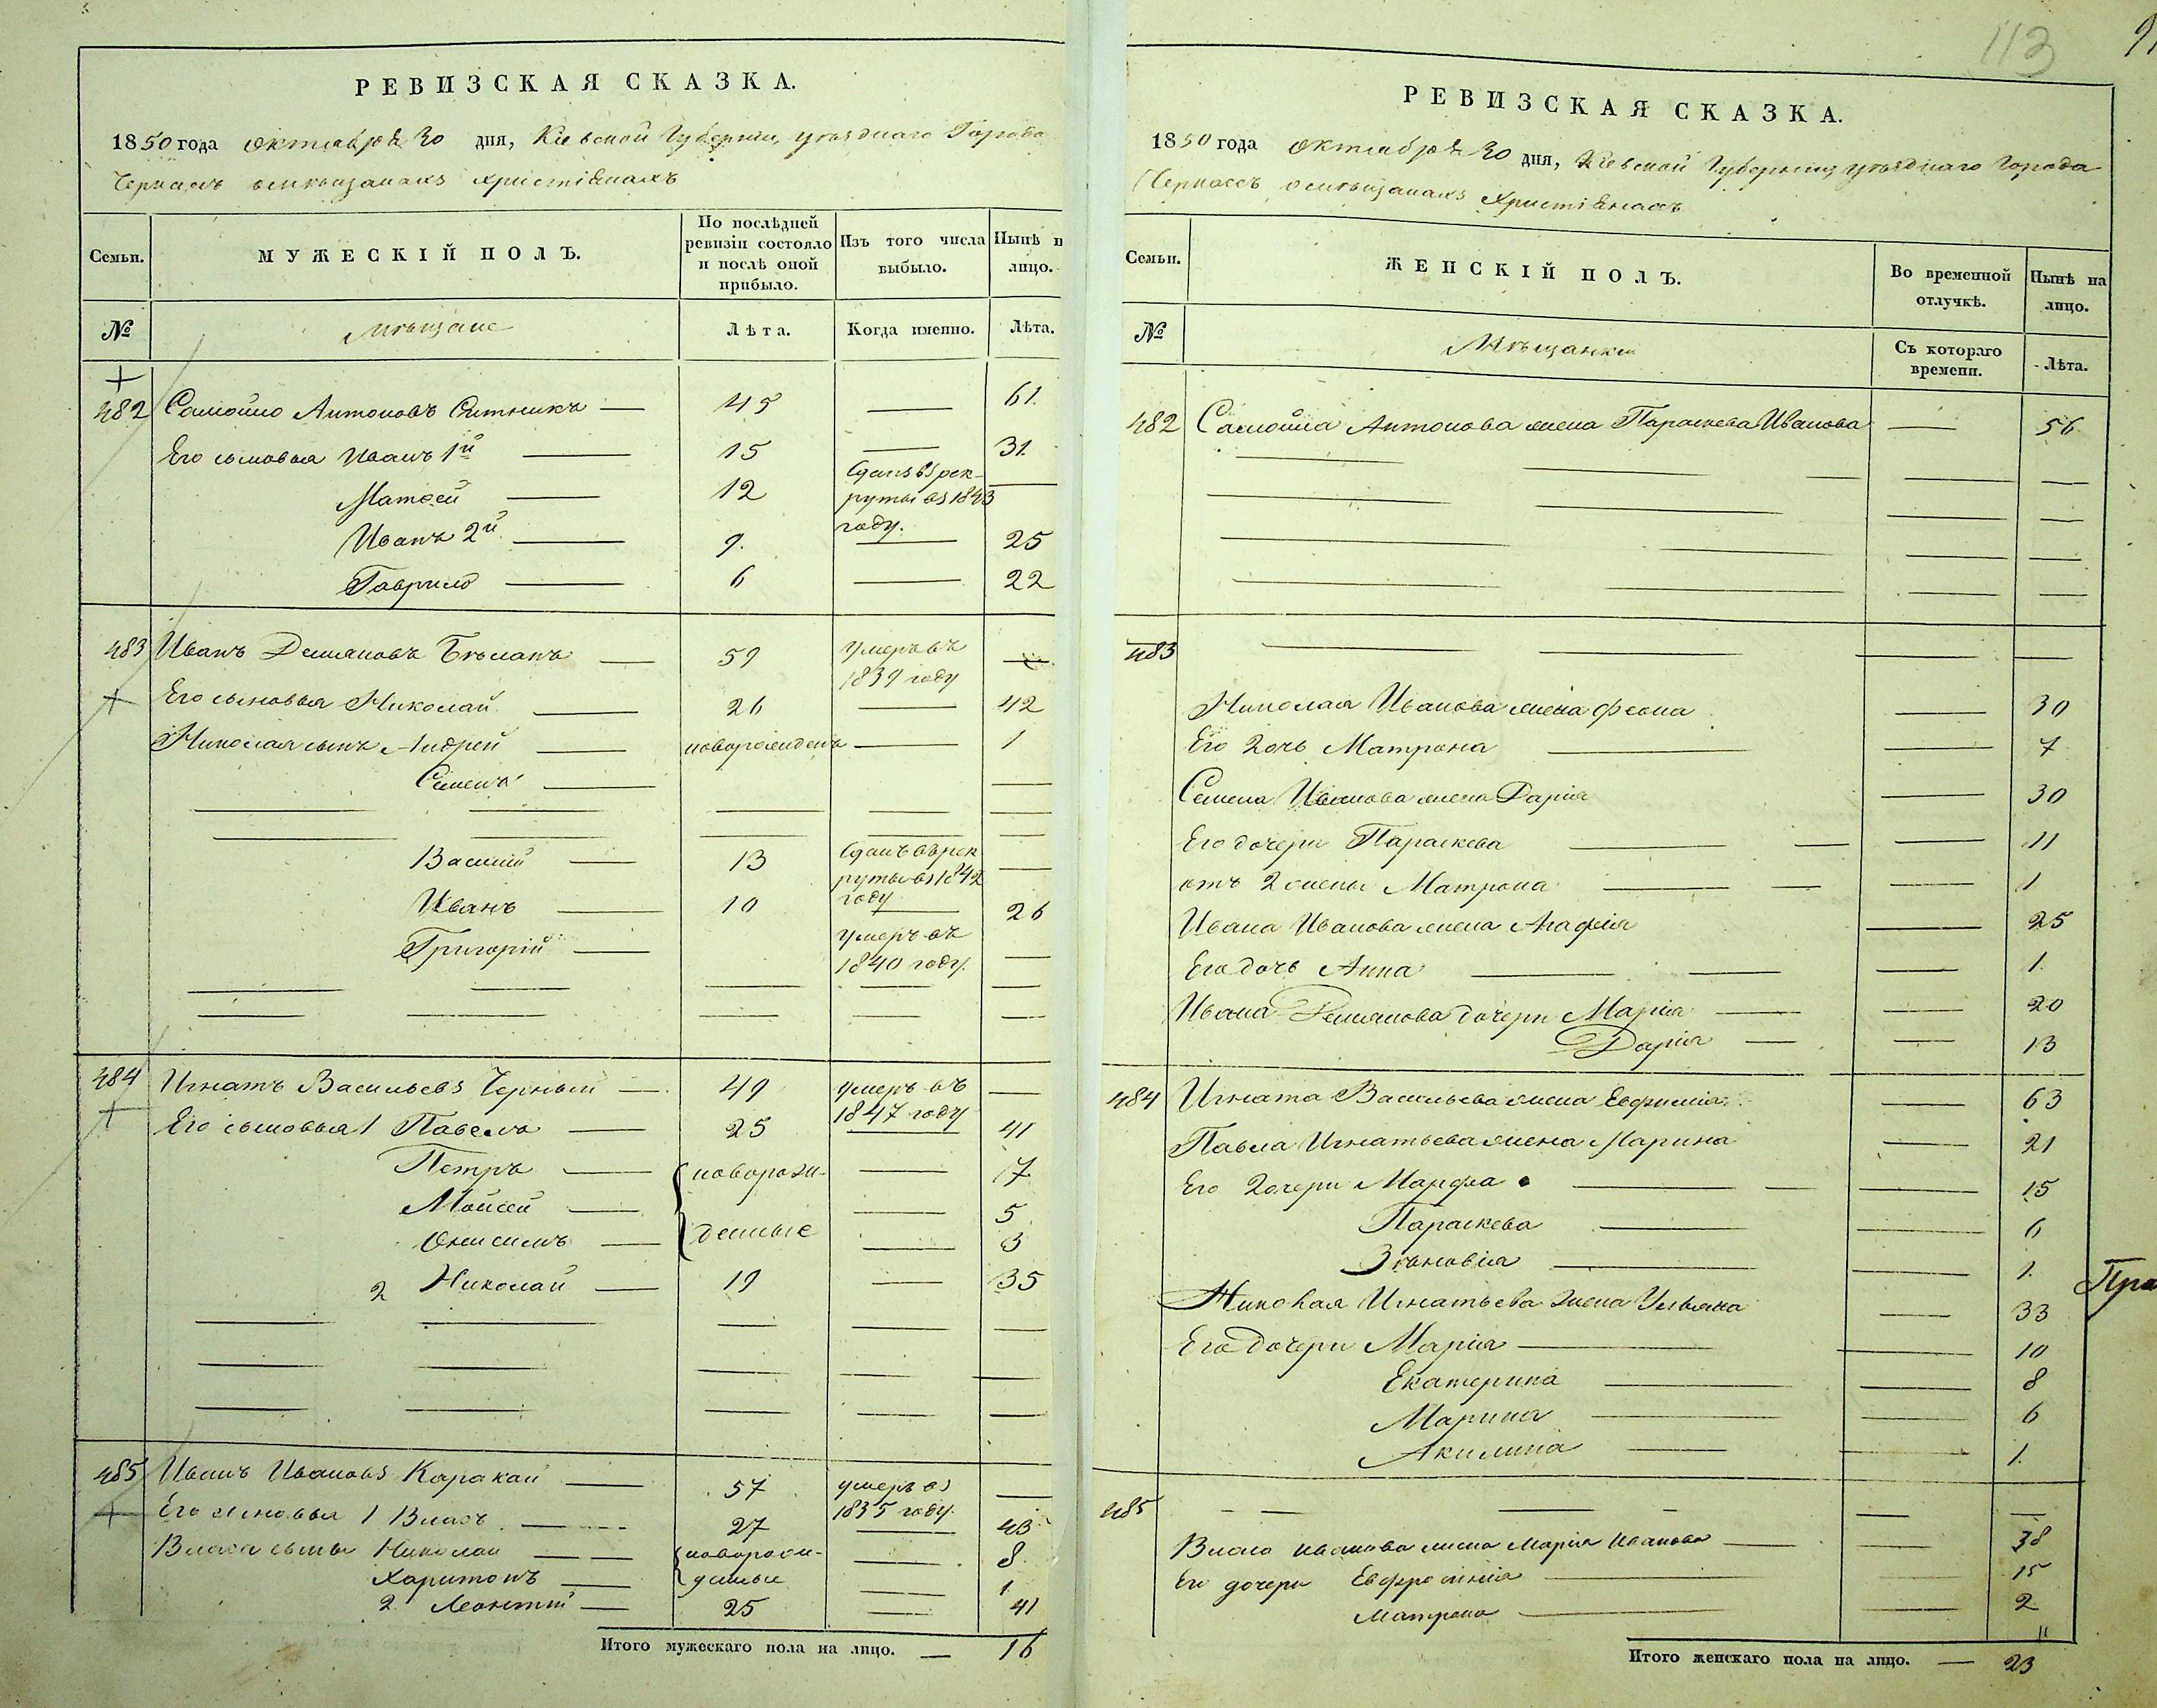 113
91
РЕВИЗСКАЯ СКАЗКА.
1850 года октября 30 дня, Кіевской Губерніи, уѣзднаго Города
Черкасъ о мѣщанахъ христіянахъ
Семьи. МУЖЕСКІЙ ПОЛЪ. По послѣдней ревизіи состояло и послѣ оной прибыло. Изъ того числа выбыло. Нынѣ н лицо.
№ Мѣщане Лѣта. Когда именно. Лѣта.
482 Самойло Антоновъ Ситникъ — 45 — 61.
Его сыновья Иванъ 1й — 15 — 31.
Матвей — 12 Сданъ въ рекруты въ 1843 году. —
Иванъ 2й — 9. — 25
Гаврило — 6 — 22
483 Иванъ Демяновъ Бѣланъ — 59 умеръ въ 1839 году —
Его сыновья Николай — 26 — 42
Николая сынъ Андрей — новорожденъ — 1
Семенъ — —
Василій — 13 Сданъ въ рекруты въ 1842 году —
Иванъ — 10 — 26
Григорій — умеръ въ 1840 году. —
484 Игнатъ Васильевъ Черный — 49 умеръ въ 1847 году —
Его сыновья 1 Павелъ — 25 — 41
Петръ — новорож- — 17
Мойсей — — 5
Онисимъ — денные — 3
2 Николай — 19 — 35
485 Иванъ Ивановъ Каракай — 57 умеръ въ 1835 году. —
Его сыновья 1 Власъ — 27 — 43
Власа сыны Николай — новорож- — 8
Харитонъ — денные — 1
2 Леонтій — 25 — 41
Итого мужескаго пола на лицо. — 16
РЕВИЗСКАЯ СКАЗКА.
1850 года октября 30 дня, Кіевской Губерніи, уѣзднаго Города
Черкасъ о мѣщанахъ Христіянахъ
Семьи. ЖЕНСКІЙ ПОЛЪ. Во временной отлучкѣ. Нынѣ на лицо.
№ Мѣщанки Съ котораго времени. Лѣта.
482 Самойла Антонова жена Параскева Иванова — 56
483 — — — —
Николая Иванова жена Феона — 30
Его дочь Матрона — — 7
Семена Иванова жена Дарія — 30
Его дочери Параскева — — 11
отъ 2 жены Матрона — — 1
Ивана Иванова жена Агафія — 25
Его дочь Анна — — 1.
Ивана Демянова дочери Марія — — 20
Дарія — — 13
484 Игната Васильева жена Евфимія — 63
Павла Игнатьева жена Марина — 21
Его дочери Марфа — — 15
Параскева — — 6
Зѣновія — — 1.
Николая Игнатьева жена Ульяна — 33
Его дочери Марія — — 10
Екатерина — — 8
Марина — — 6
Акилина — — 1.
Пра
485 — — — —
Власа Иванова жена Марія Иванова — — 38
Его дочери Евфросинія — — 15
Матрона — — 2
"
Итого женскаго пола на лицо. — 23